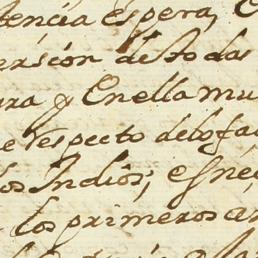 tencia espera, E
ersion de todas
ara q̃ En ella mu
e respecto de lo fa
los Indios; es ne
los primeros a